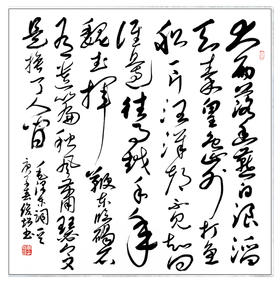 大雨落幽燕白浪滔
天秦皇岛外打鱼
船一片汪洋都不见知向
谁边往事越千年
魏武挥鞭东临碣石
有遗篇秋风萧瑟今又
是换了人间
毛泽东词
书